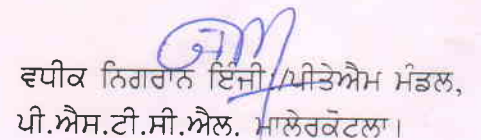 ਵਧੀਕ ਨਿਗਰਾਨ ਇੰਜੀ:/ਪੀਤੇਐਮ ਮੰਡਲ,
ਪੀ.ਐਸ.ਟੀ.ਸੀ.ਐਲ. ਮਾਲੇਰਕੋਟਲਾ।